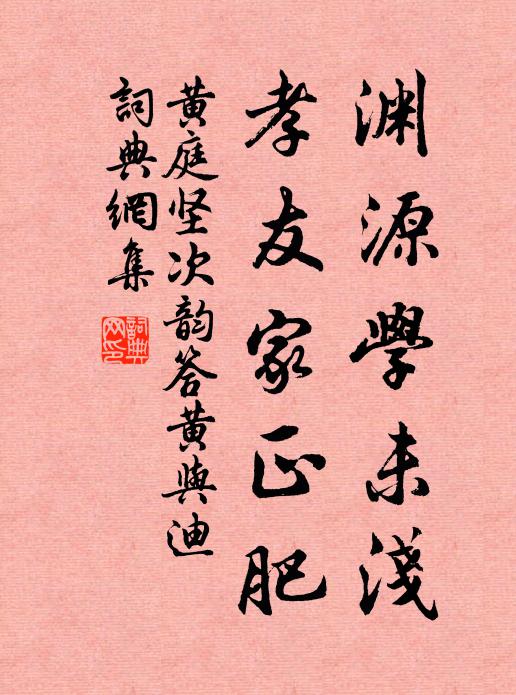 渊源學未淺
孝友家正肥
黄庭坚次韵答黄與迪
詞典網集
詞典网印